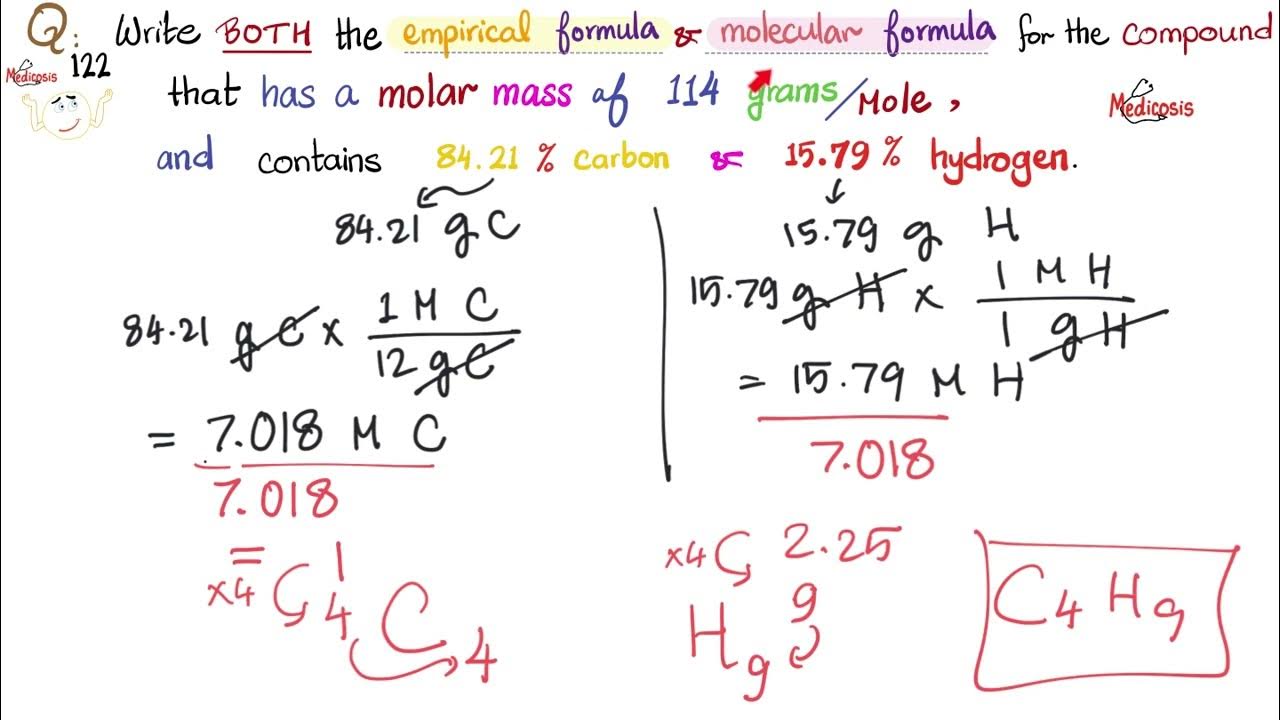 Q: Write BOTH the empirical formula & molecular formula for the compound
Medicosis 122
that has a molar mass of 114 grams/Mole,
Medicosis
and contains 84.21 % carbon & 15.79 % hydrogen.
84.21 g C
15.79 g H
84.21 g C x 1 M C / 12 g C
15.79 g H x 1 M H / 1 g H
= 7.018 M C
= 15.79 M H
7.018
7.018
= 1
x4 4
C4
2.25
x4 9
H9
C4 H9